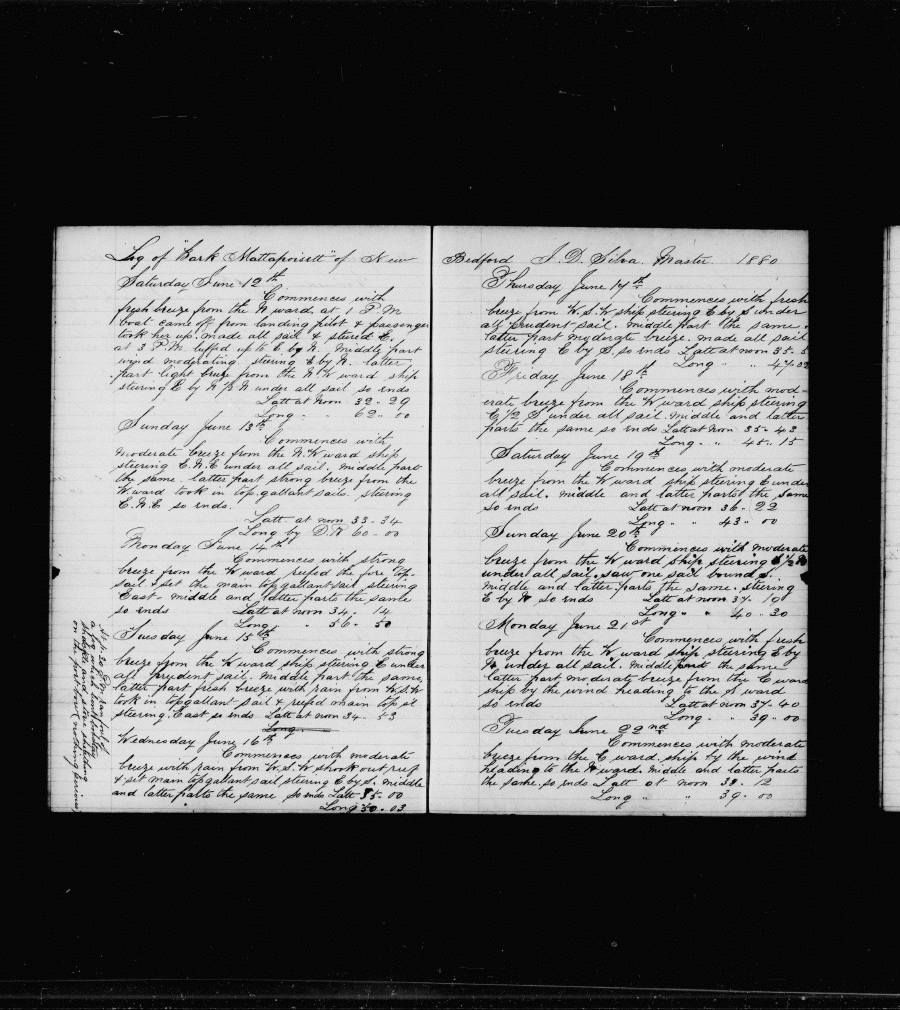 Log of "Bark Mattapoisett" of New
Saturday June 12th
Commences with
fresh breeze from the N ward, at 1 P.M
boat came off from landing pilot & passenger
took her up. made all sail & stered E.
at 3 P.M. luffed up to E by N. Middle part
wind moderating, stering E by N. latter
part light breeze from the N.W ward ship
steering E by N ½ N under all sail so ends
Latt at noon 32-29
Long. " 62-00
Sunday June 13th
Commences with
moderate breeze from the N.W ward ship
steering E.N.E under all sail. middle part
the same. latter part strong breeze from the
W. ward took in top. gallant sails. steering
E.N.E so ends.
Latt. at noon 33-34
Long by D.R 60-00
Monday June 14th
Commences with strong
breeze from the W ward reefed the fore top-
sail & set the main topgallant sail steering
East- middle and latter parts the same
so ends Latt at noon 34-14
Long " 56-50
Tuesday June 15th
Commences with strong
breeze from the W ward ship steering E under
all prudent sail. middle part the same.
latter part fresh breeze with rain from W.S.W
took in topgallant sail & reefed main top sl
steering East so ends Latt at noon 34-53
Long
Wednesday June 16th
Commences with moderate
breeze with rain from W.S.W shook out reef
& set main topgallant sail steering E by S. middle
and latter parts the same so ends Latt 35-00
Long 50-03
at 7.30 P.M. ran foul of
a log which
on the port bow (nothing serious)
Bedford J. D. Silva Master 1880
Thursday June 17th
Commences with fresh
breeze from W.S.W ship steering E by S under
all prudent sail. middle part the same.
latter part moderate breeze. made all sail
steering E by S, so ends Latt at noon 35-5
Long " " 47-22
Friday June 18th
Commences with mod-
erate breeze from the W ward ship steering
E ½ S under all sail. Middle and latter
parts the same so ends Latt at noon 35-43
Long. " 45-15
Saturday June 19th
Commences, with moderate
breeze from the W ward ship steering E under
all sail. middle and latter parts the same
so ends Latt at noon 36-22
Long " " 43-00
Sunday June 20th
Commences with moderate
breeze from the W ward ship steering
under all sail. saw one sail bound S.
middle and latter parts the same. steering
E by N so ends Latt at noon 37-19
Long " " 40-30
Monday June 21st
Commences with fresh
breeze from the W ward ship steering E by
N, under all sail. Middle part the same
latter part moderate breeze from the E ward
ship by the wind heading to the S ward
so ends Latt at noon 37-40
Long " 39-00
Tuesday June 22nd
Commences with moderate
breeze from the E ward ship by the wind
heading to the N ward. Middle and latter parts
the same. so ends Latt at noon 38-12
Long " " 39-00